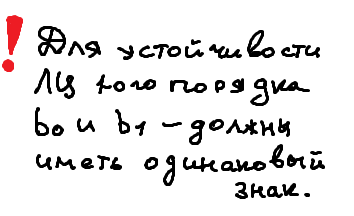 ! Для устойчивости
ЛЦ 1ого порядка
b0 и b1 – должны
иметь одинаковый
знак.